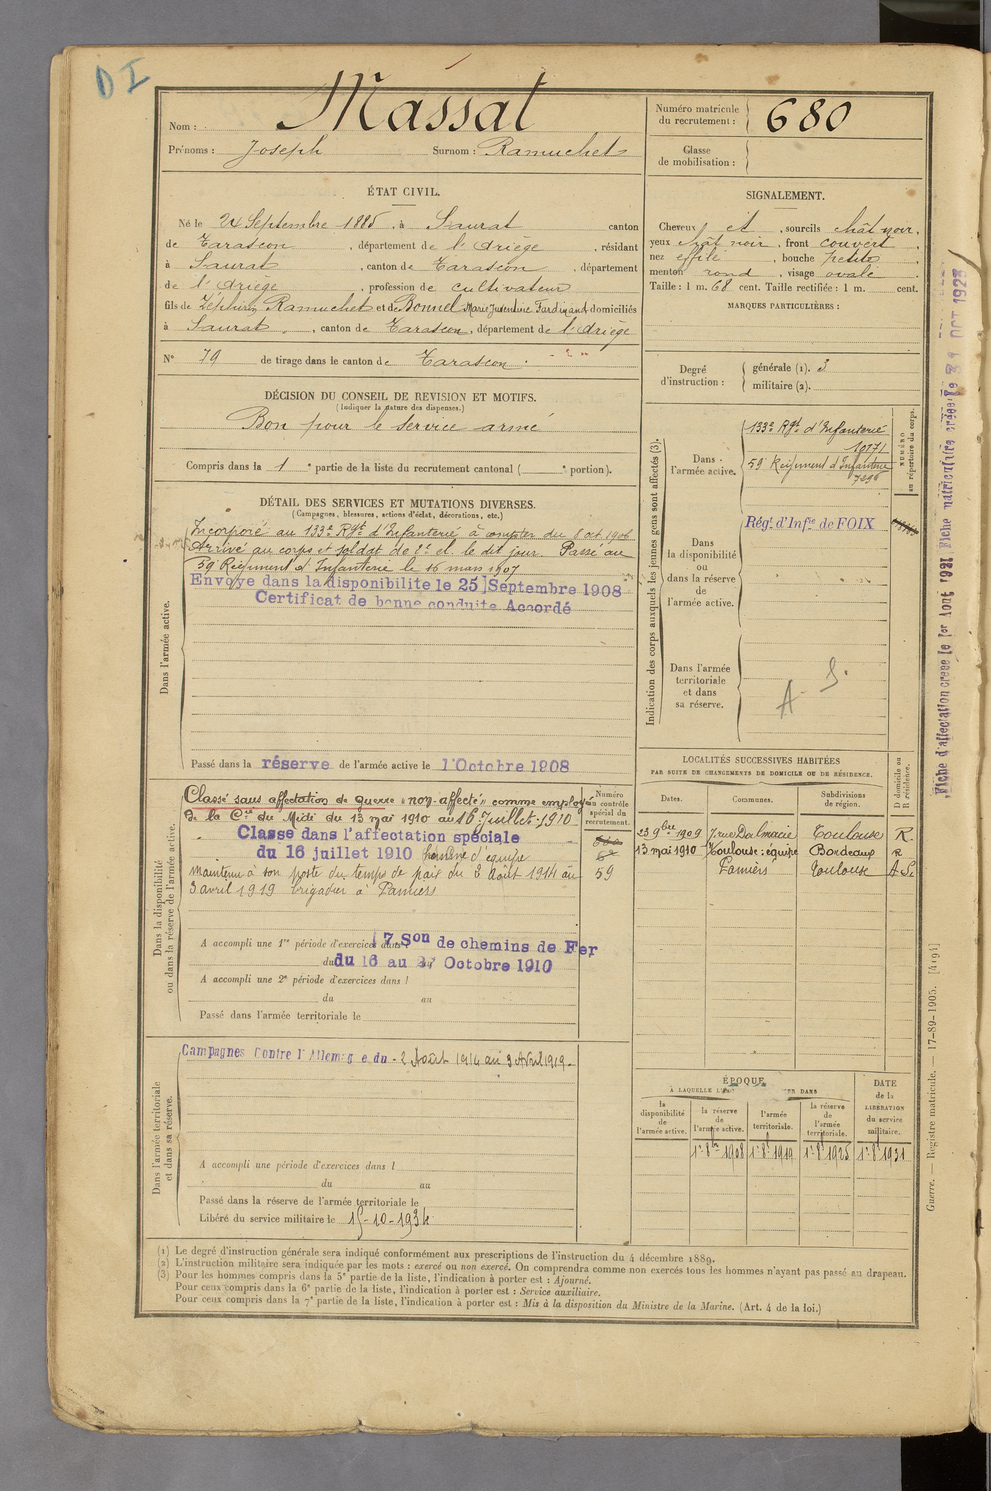 DI
Nom : Massat
Prénoms : Joseph Surnom : Ramuchet
Numéro matricule du recrutement : 680
Classe de mobilisation :
ÉTAT CIVIL.
Né le 24 Septembre 1885, à Saurat canton
de Tarascon, département de l'Ariège, résidant
à Saurat, canton de Tarascon, département
de l'Ariège, profession de cultivateur
fils de Ramuchet et de Bonnel Marie Ferdinand domiciliés
à Saurat, canton de Tarascon, département de l'Ariège
N° 79 de tirage dans le canton de Tarascon.
SIGNALEMENT.
Cheveux et, sourcils chât noir,
yeux chât noir, front couvert,
nez effilé, bouche petite,
menton rond, visage ovale
Taille : 1 m. 68 cent. Taille rectifiée : 1 m. cent.
MARQUES PARTICULIÈRES :
Degré d'instruction : générale (1). 3
militaire (2).
DÉCISION DU CONSEIL DE REVISION ET MOTIFS.
(Indiquer la nature des dispenses.)
Bon pour le service armé
Compris dans la 1e partie de la liste du recrutement cantonal ( e portion).
DÉTAIL DES SERVICES ET MUTATIONS DIVERSES.
(Campagnes, blessures, actions d'éclat, décorations, etc.)
Dans l'armée active.
Incorporé au 133e Rgt d'Infanterie à compter du 8 oct. 1906
Arrivé au corps et soldat de 2e cl. le dit jour. Passé au
59 Régiment d'Infanterie le 16 mars 1907
Envoyé dans la disponibilite le 25 Septembre 1908
Certificat de bonne conduite Accordé
Passé dans la réserve de l'armée active le 1 Octobre 1908
Indication des corps auxquels les jeunes gens sont affectés (3).
NUMÉRO au répertoire du corps.
Dans l'armée active.
133e Rgt d'Infanterie
59 Régiment d'Infanterie
Dans la disponibilité ou dans la réserve de l'armée active.
Régt d'Infie de FOIX
Dans l'armée territoriale et dans sa réserve.
A. S.
Dans la disponibilité ou dans la réserve de l'armée active.
Classé sans affectation de guerre "non-affecté" comme employé
de la Cie du Midi du 13 mai 1910 au 16 juillet 1910
Classe dans l'affectation spéciale
du 16 juillet 1910 homme d'équipe
maintenu à son poste du temps de paix du 2 Août 1914 au
3 avril 1919 brigadier à Pamiers
Numéro au contrôle spécial du recrutement.
59
A accompli une 1re période d'exercices dans 7 Son de chemins de Fer
du 16 au 27 Octobre 1910
A accompli une 2e période d'exercices dans
du au
Passé dans l'armée territoriale le
LOCALITÉS SUCCESSIVES HABITÉES
PAR SUITE DE CHANGEMENTS DE DOMICILE OU DE RÉSIDENCE.
Dates. Communes. Subdivisions de région. D domicile ou R résidence.
23 9bre 1909 7 rue Dalmacie Toulouse R.
13 mai 1910 Toulouse : équipe Bordeaux R
Pamiers Toulouse A.S.
Dans l'armée territoriale et dans sa réserve.
Campagnes Contre l'Allemagne du 2 Août 1914 au 3 Avril 1919.
A accompli une période d'exercices dans
du au
Passé dans la réserve de l'armée territoriale le
Libéré du service militaire le 15-10-1934
ÉPOQUE
la disponibilité de l'armée active. la réserve de l'armée active. l'armée territoriale. la réserve de l'armée territoriale. DATE de la LIBÉRATION du service militaire.
1r 8bre 1908 1r 8b 1919 1r 8b 1925 1r 8b 1931
(1) Le degré d'instruction générale sera indiqué conformément aux prescriptions de l'instruction du 4 décembre 1889.
(2) L'instruction militaire sera indiquée par les mots : exercé ou non exercé. On comprendra comme non exercés tous les hommes n'ayant pas passé au drapeau.
(3) Pour les hommes compris dans la 5e partie de la liste, l'indication à porter est : Ajourné.
Pour ceux compris dans la 6e partie de la liste, l'indication à porter est : Service auxiliaire.
Pour ceux compris dans la 7e partie de la liste, l'indication à porter est : Mis à la disposition du Ministre de la Marine. (Art. 4 de la loi.)
Fiche d'affectation creée le 1er Aout 1921 Fiche matriculaire créée le 31 OCT 1923
Guerre. — Registre matricule. — 17-89-1905. [4194]